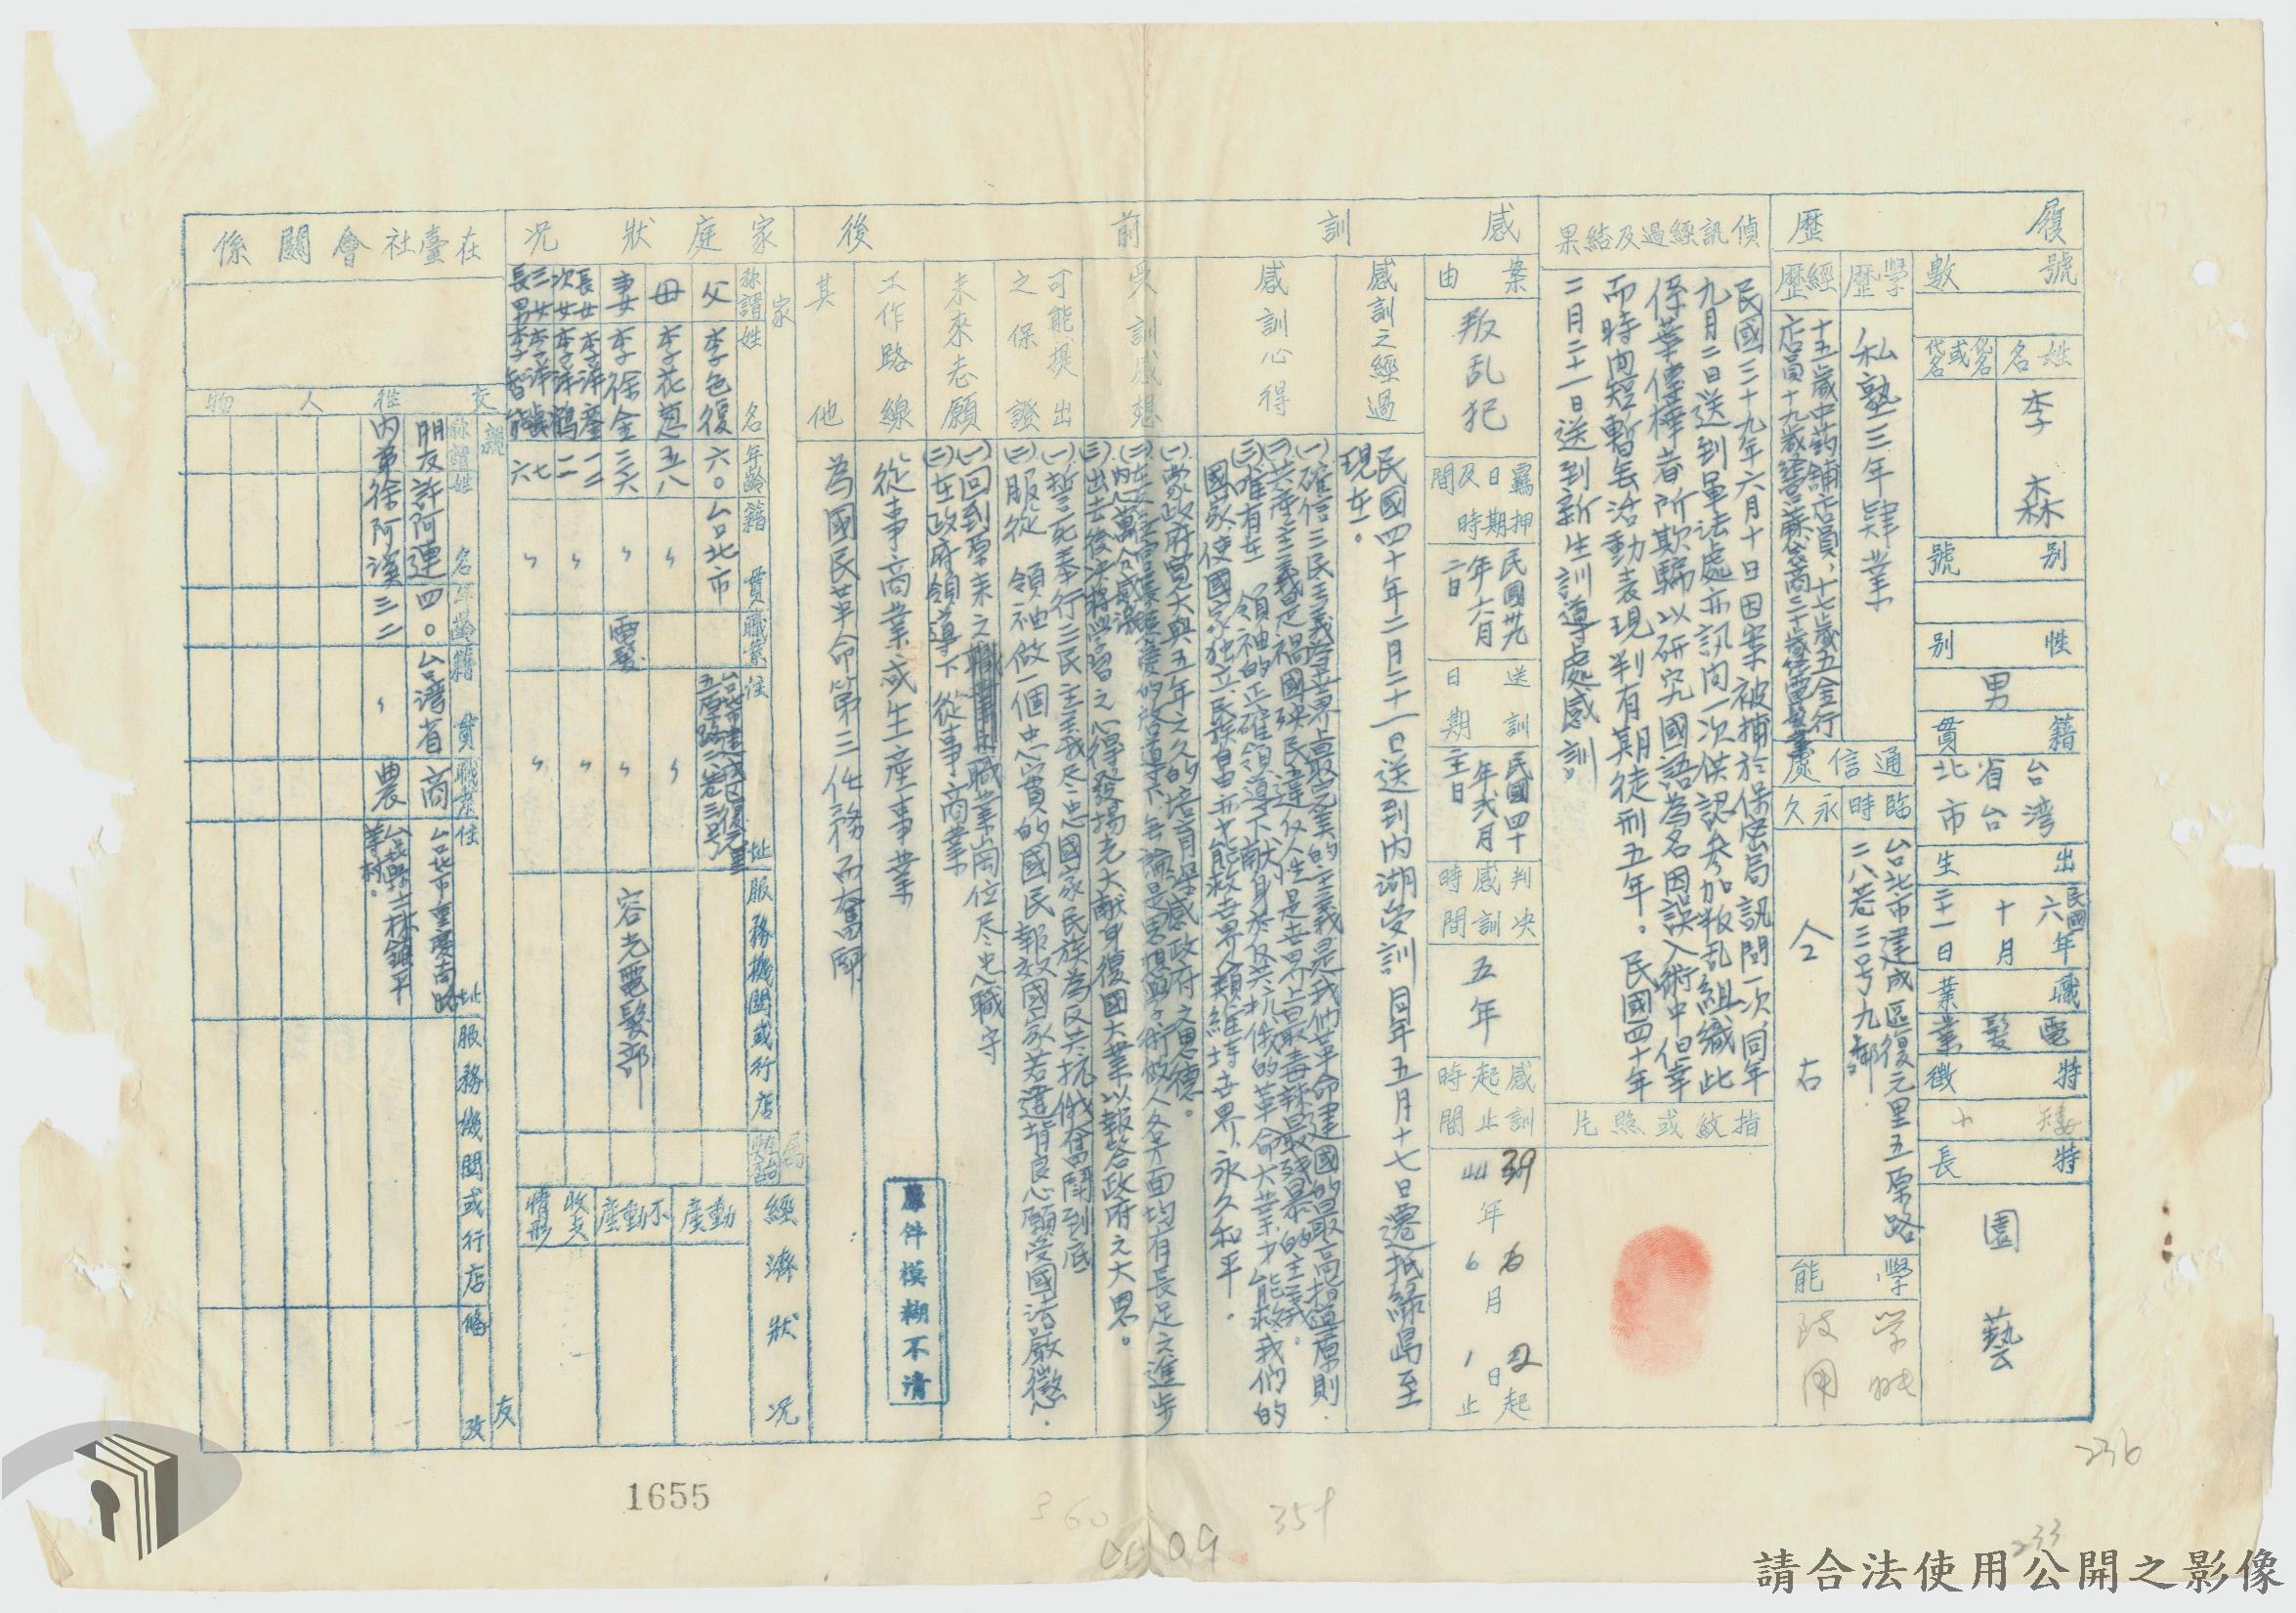 履歷
號數
姓名
李森
化名或代名
別號
性別
男
籍貫
台灣省台北市
出生
民國六年十月二十一日
職業
電髮業
特徵
矮小
特長
園藝
學歷
私塾三年肄業
經歷
十五歲中葯舖店員、十七歲五金行
店員十九歲經營
通信處
臨時
永久
台北市建成區復元里五原路
二八巷三号九鄰
仝右
學能
偵訊經過及結果
民國三十九年六月十日因案被捕於保密局訊問一次同年
九月二日送到軍法處亦訊问一次供認参加叛乱組織此
係葉傳樺者所欺騙以研究國語為名因誤入術中但幸
而時间短暫無活動表現判有期徒刑五年。民國四十年
二月二十一日送到新生訓導處感訓
指紋或照片
感訓前後
案由
叛乱犯
羈押日期及時間
民國卅九年六月二日
送訓日期
民國四十年弍月二十一日
判決感訓時間
五年
感訓起止時間
39年6月2日起
44年6月1日止
感訓之經過
民國四十年二月二十一日送到内湖受訓同年五月十七日遷抵綠島至
現在。
感訓心得
(一)確信三民主義是世界最完美的主義是我們革命建國的最高指導原則.
(二)共产主義是禍國殃民違反人性是世界上最毒辣最殘暴的主義。
(三)唯有在 領袖的正確領導下献身於反共抗俄的革命大業才能救我们的
國家使國家独立民族自由亦才能救世界人類維持世界永久和平.
受訓感想
(一)蒙政府寬大與五年之久的培育深感政府之恩德。
(二)在各官長懇切的指導下無論是思想與学術做人各方面均有長足之進步
内心萬分感激
(三)出去後決将學習之心得發揚光大献身復國大業以報答政府之大恩。
可能提出之保證
(一)誓死奉行三民主義尽忠國家民族為反共抗俄奮鬪到底
(二)服從 領袖做一個忠實的國民報效國家若違背良心願受國法嚴懲.
未來志願
(一)回到原来之職業崗位尽忠職守
(二)在政府領導下從事商業
工作路線
從事商業或生產事業
其他
為國民革命第三任務而奮鬪
原件模糊不清
家庭狀况
家屬
称謂 姓名 年齡 籍貫 職業 住址 服務機關或行店
父 李色復 六〇 台北市 台北市建成區復元里五原路二八巷三号
母 李花葱 五八 〃 〃
妻 李徐金 三六 〃 電髮 〃 容光電髮部
長女 一二
次女 一一 〃 〃
三女 七
長男 李智能 六 〃 〃
經濟狀况
動產
不動產
收支情形
在臺社會關係
交往人物
親友
称謂 姓名 年齡 籍貫 職業 住址 服務機關或行店 備攷
朋友 許阿連 四〇 台灣省 商 台北市重慶南路
内弟 徐阿漢 三二 〃 農 台北縣士林鎮平等村。
1655
360
359
0009
236
233
請合法使用公開之影像